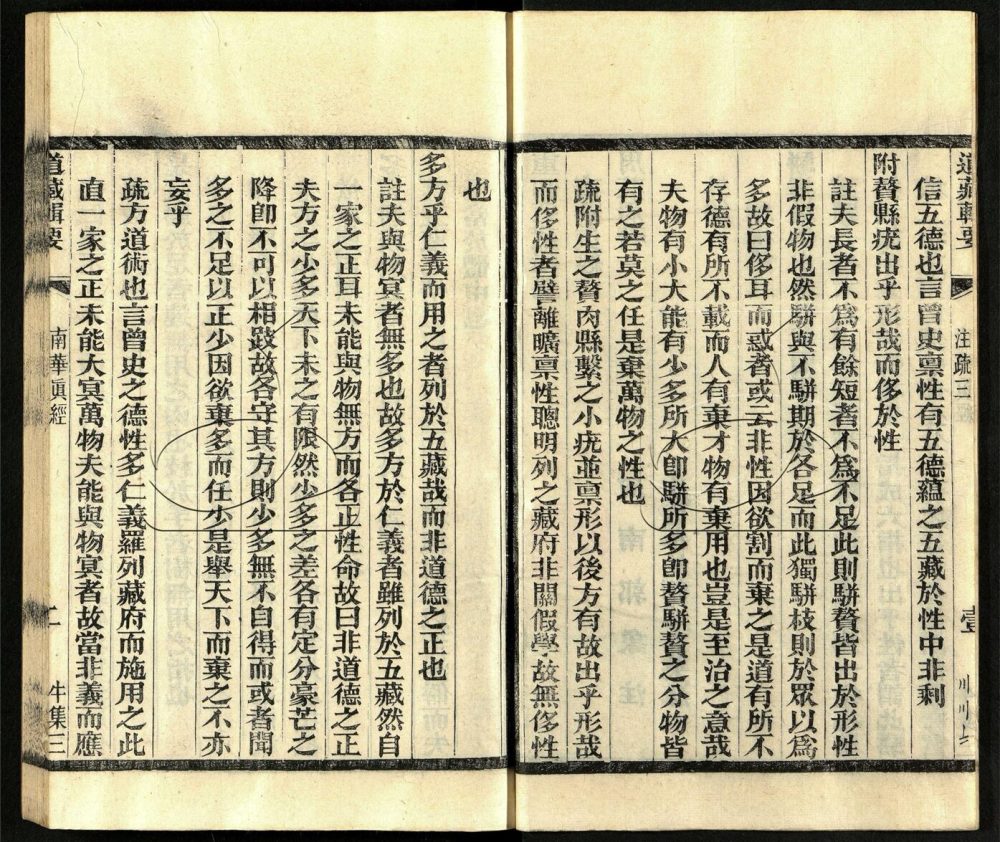 道藏輯要
注疏三
壹
信五德也言曾史禀性有五德蘊之五藏於性中非剩
附贅縣疣出乎形哉而侈於性
註夫長者不爲有餘短者不爲不足此則駢贅皆出於形性
非假物也然駢與不駢期於各足而此獨駢枝則於眾以爲
多故曰侈耳而惑者或云非性因欲割而棄之是道有所不
存德有所不載而人有棄才物有棄用也豈是至治之意哉
夫物有小大能有少多所大卽駢所多卽贅駢贅之分物皆
有之若莫之任是棄萬物之性也
疏附生之贅肉縣繫之小疣並禀形以後方有故出乎形哉
而侈性者譬離曠禀性聰明列之藏府非關假學故無侈性
也
多方乎仁義而用之者列於五藏哉而非道德之正也
註夫與物冥者無多也故多方於仁義者雖列於五藏然自
一家之正耳未能與物無方而各正性命故曰非道德之正
夫方之少多天下未之有限然少多之差各有定分豪芒之
降卽不可以相跂故各守其方則少多無不自得而或者聞
多之不足以正少因欲棄多而任少是舉天下而棄之不亦
妄乎
疏方道術也言曾史之德性多仁義羅列藏府而施用之此
直一家之正未能大冥萬物夫能與物冥者故當非義而應
道藏輯要
南華眞經
二
牛集三